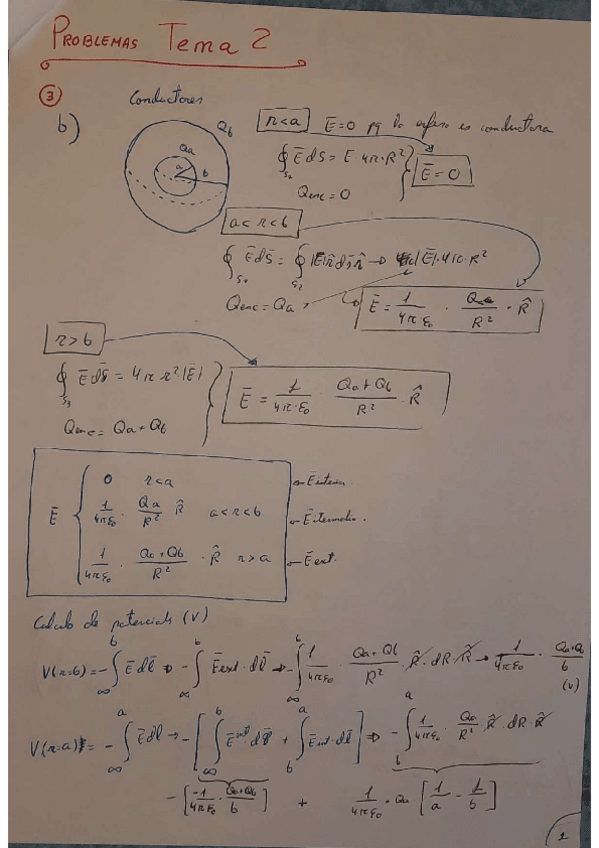 PROBLEMAS Tema 2
③ Conductores
b)
Qb
Qa
a
b
r<a Ē=0 pq la esfera es conductora
∮S₁ Ēds̄ = E 4π·R² } Ē = 0
Qenc = 0
a<r<b
∮S₂ Ēds̄ = ∮S₂ |E|r̂ds̄r̂ → |Ē|·4π·R²
Qenc = Qa
Ē = 1/4π·ε₀ · Qa/R² · R̂
r>b
∮S₃ Ēds̄ = 4π r²|Ē|
Qenc = Qa + Qb
Ē = 1/4π·ε₀ · Qa+Qb/R² · R̂
Ē { 0 r<a → Ē interior.
1/4πε₀ · Qa/R² R̂ a<r<b → Ē itermedio.
1/4πε₀ · Qa+Qb/R² · R̂ r>a → Ē ext.
Calculo de potencials (V)
V(r=b) = -∫∞ᵇ Ēdl̄ ⇒ -∫∞ᵇ Ēext·dl̄ → -∫∞ᵇ 1/4πε₀ · Qa+Qb/R² · R̂·dR·R̂ → 1/4πε₀ · Qa+Qb/b (V)
V(r=a) = -∫∞ᵃ Ēdl → -[∫∞ᵇ Ēext·dl̄ + ∫bᵃ Ēint·dl̄] ⇒ -∫bᵃ 1/4πε₀ · Qa/R² R̂·dR·R̂
-[-1/4πε₀ · Qa+Qb/b] + 1/4πε₀ · Qa [1/a - 1/b]
1